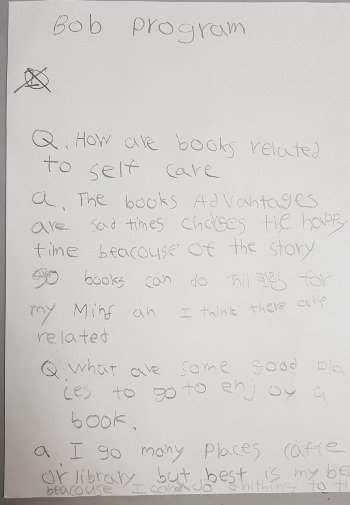 Bob program
Q. How are books related
to self care
a. The books Advantages
are sad times changes the happy
time beacouse of the story
go books can do 힐링 for
my Mind an I think there are
related
Q. what are some good pla
ces to go to enjoy a
book.
a. I go many places caffe
or library but best is my be
beacouse I can do